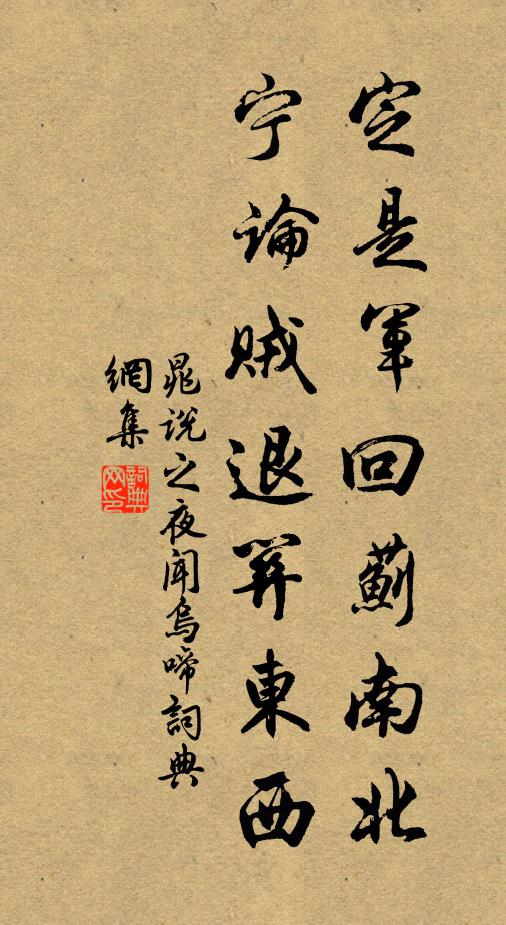 定是軍回薊南北
宁論賊退關東西
晁說之夜聞烏啼詞典
網集
詞典
网印